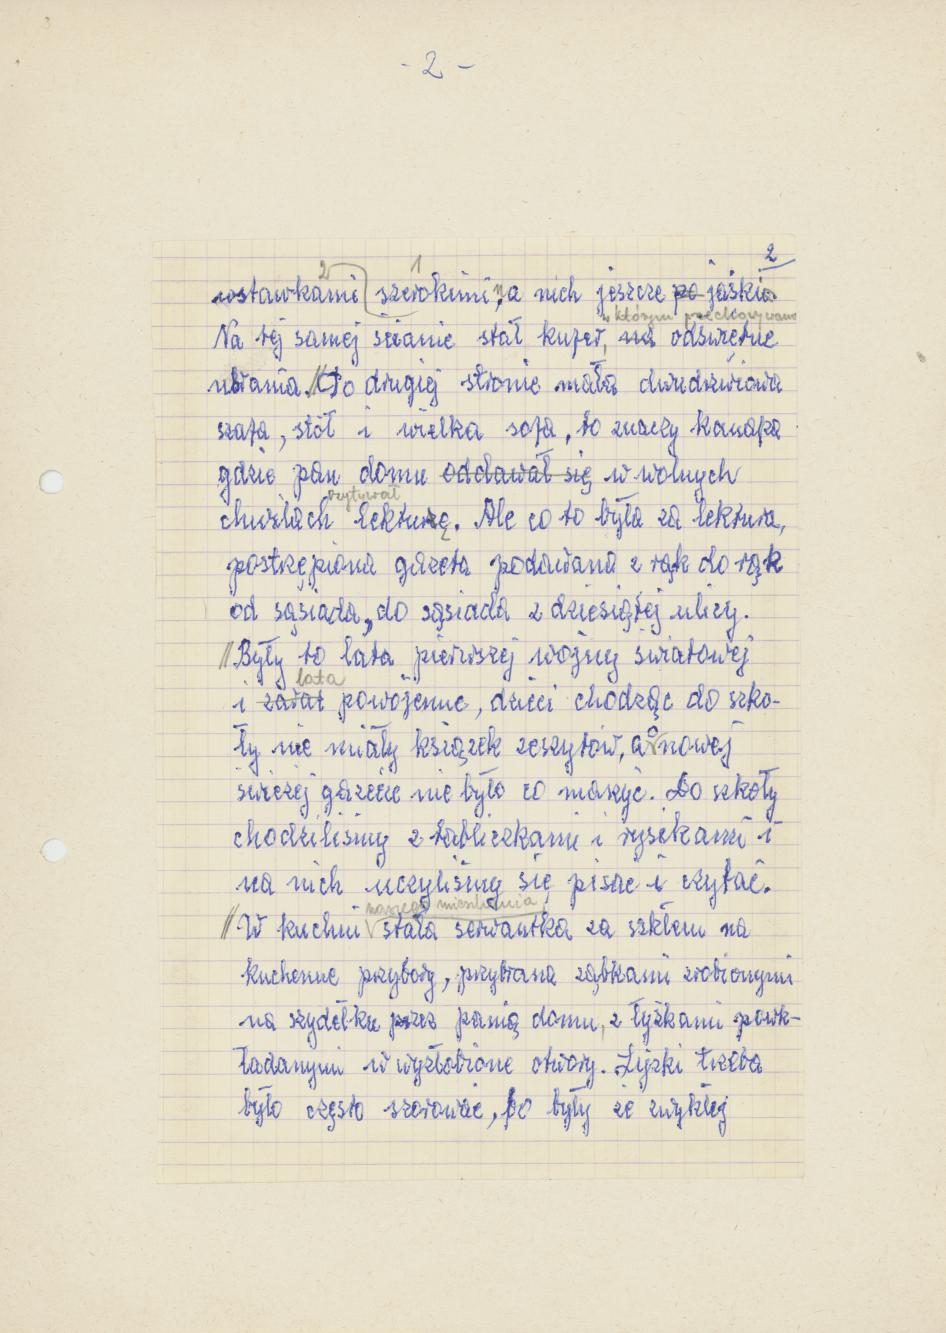 - 2 -
2
2 1
wstawkami szerokimi, a nich jeszcze po jaśki.
w którym przechowywano
Na tej samej ścianie stał kufer, na odświętne
ubrania. // Po drugiej stronie mała dwudrzwiowa
szafa, stół i wielka sofa, to znaczy kanapa
gdzie pan domu oddawał się w wolnych
czytywał
chwilach lekturę. Ale co to była za lektura,
postrzępiona gazeta podawana z rąk do rąk
od sąsiada, do sąsiada z dziesiątej ulicy.
// Były to lata pierwszej wojny światowej
lata
i zaraz powojenne, dzieci chodząc do szko-
ły nie miały książek zeszytów, a o nowej
świeżej gazecie nie było co marzyć. Do szkoły
chodziliśmy z tabliczkami i rysikami i
na nich uczyliśmy się pisać i czytać.
naszego mieszkania
// W kuchni stała serwantka za szkłem na
kuchenne przybory, przybrana ząbkami zrobionymi
na szydełku przez panią domu, z łyżkami powk-
ładanymi w wyżłobione otwory. Łyżki trzeba
było często szorować, bo były ze zwykłej